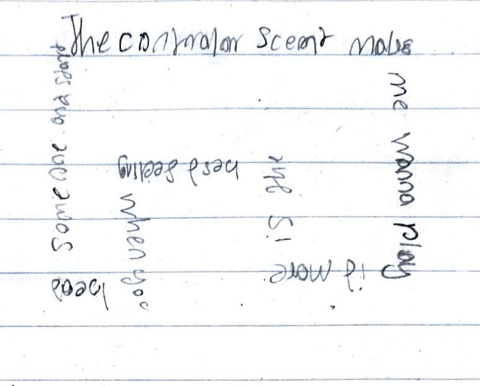 The controlor scent make
me wanna play
it more.
is the
best feeling
when you
beat
some one and